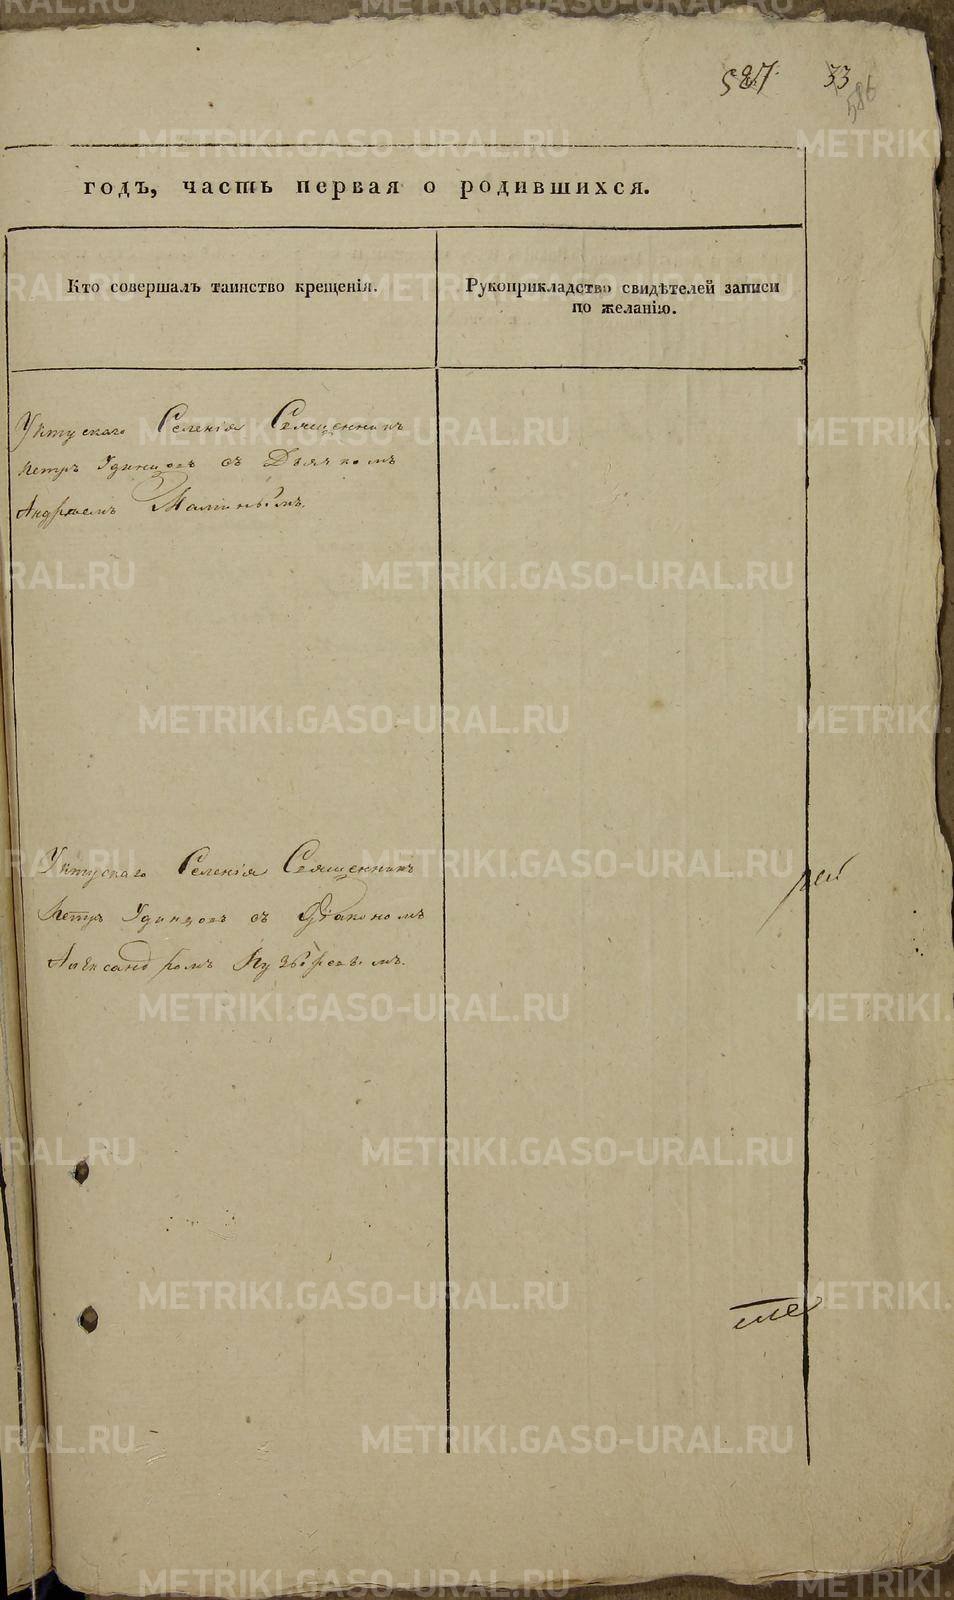 587. 33
586
годъ, часть первая о родившихся.
Кто совершалъ таинство крещенія.
Рукоприкладство свидѣтелей записи
по желанію.
Уктускаго Селенія Священникъ
Петръ Удинцовъ съ Дьячкомъ
Андреемъ
Уктускаго Селенія Священникъ
Петръ Удинцовъ съ Діакономъ
Александромъ
METRIKI.GASO-URAL.RU